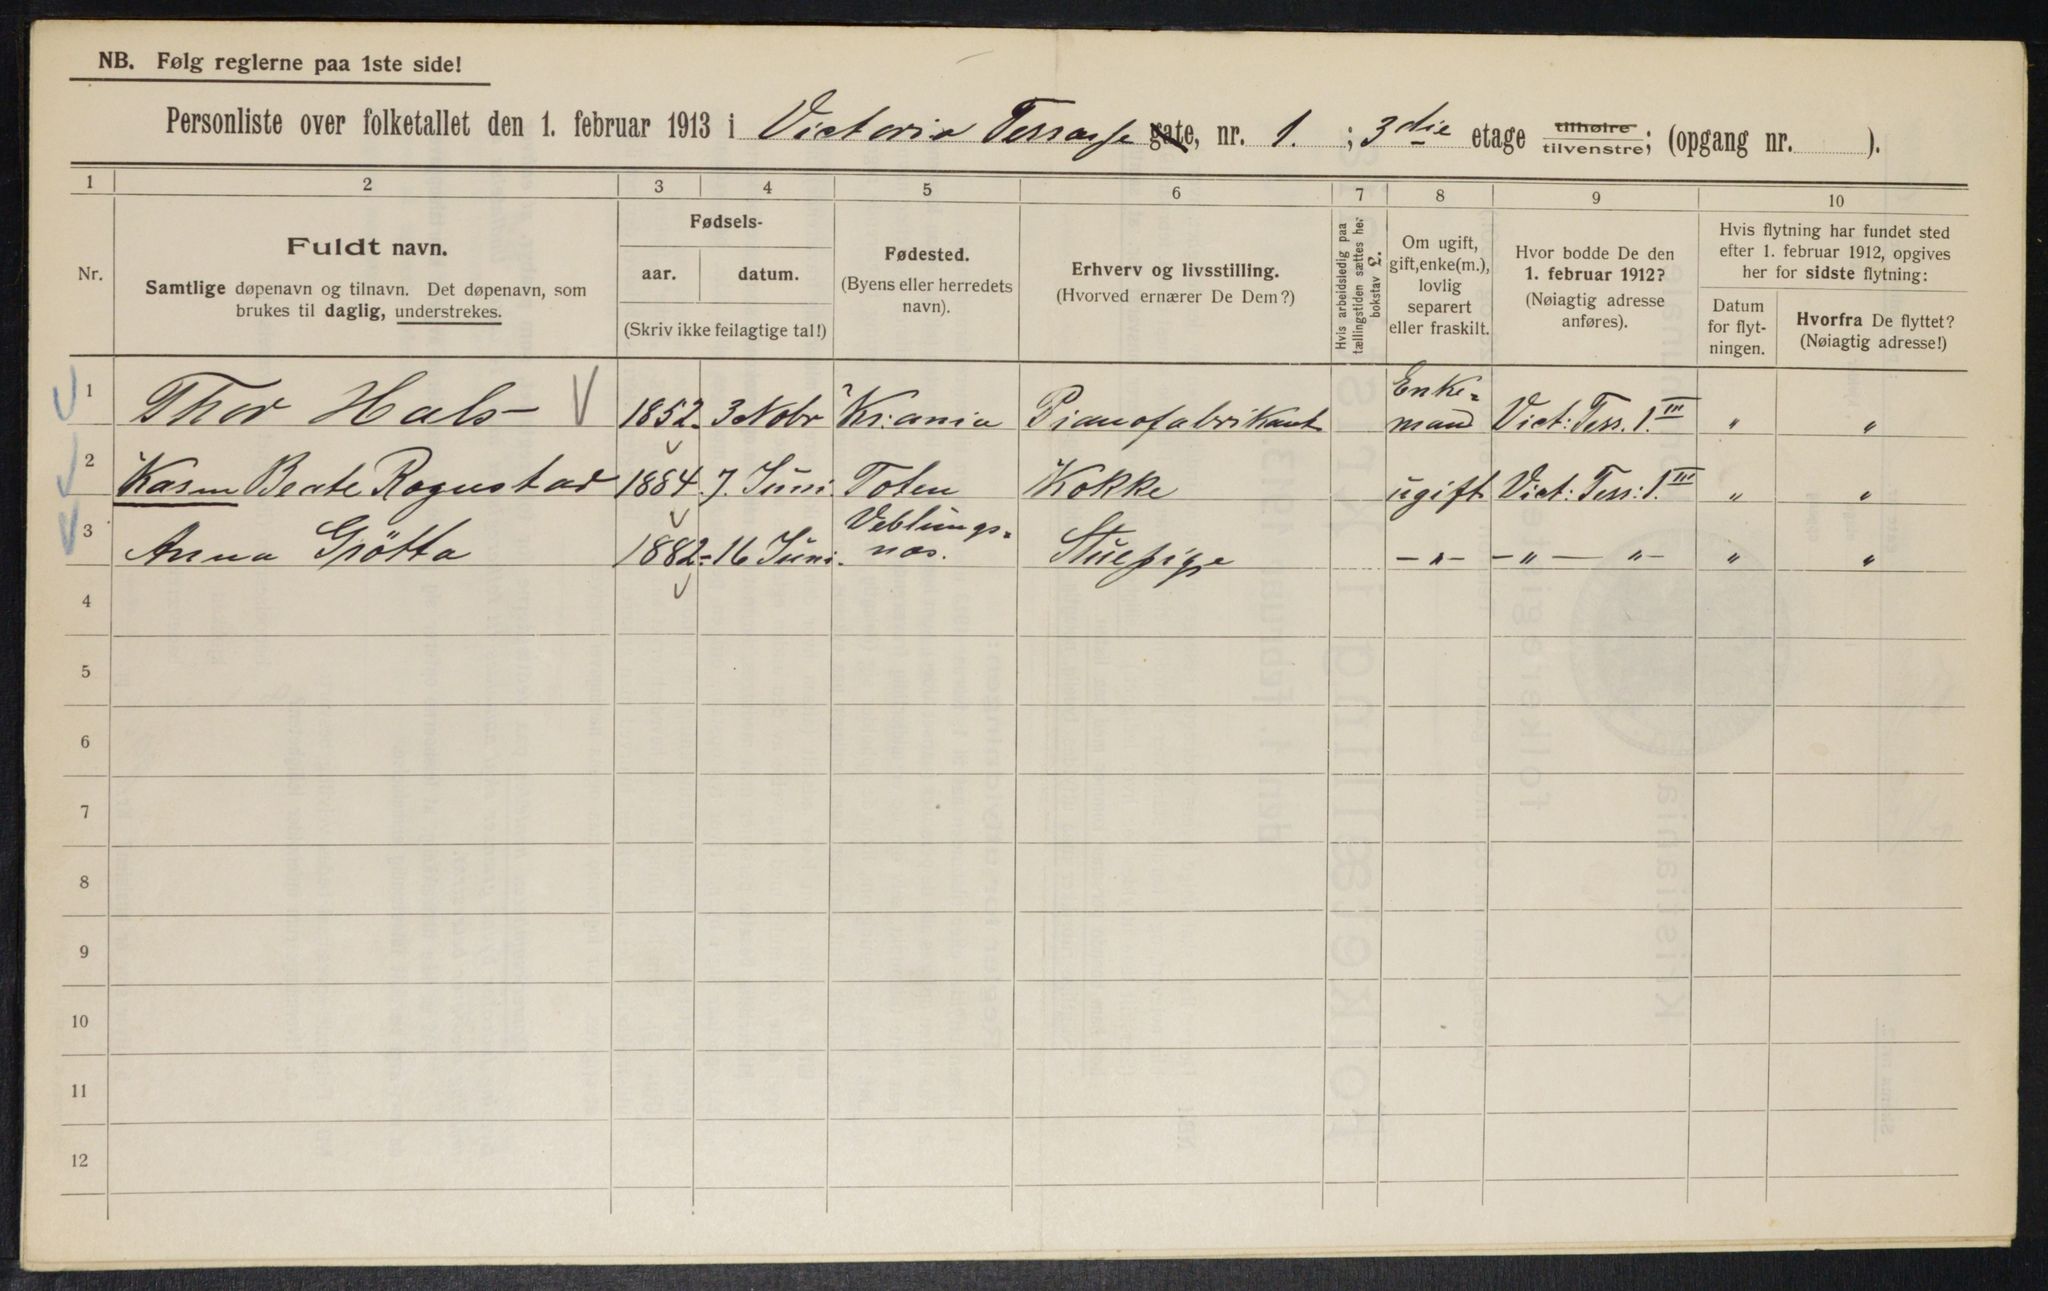 NB. Følg reglerne paa 1ste side!
Personliste over folketallet den 1. februar 1913 i Victoria Terrasse gate, nr. 1. ; 3die etage tilhøire tilvenstre; (opgang nr. ).
1 2 3 4 5 6 7 8 9 10
Nr.
Fuldt navn.
Samtlige døpenavn og tilnavn. Det døpenavn, som
brukes til daglig, understrekes.
Fødsels-
aar. datum.
(Skriv ikke feilagtige tal!)
Fødested.
(Byens eller herredets
navn).
Erhverv og livsstilling.
(Hvorved ernærer De Dem?)
Hvis arbeidsledig paa
tællingstiden sættes her
bokstav L.
Om ugift,
gift, enke(m.),
lovlig
separert
eller fraskilt.
Hvor bodde De den
1. februar 1912?
(Nøiagtig adresse
anføres).
Hvis flytning har fundet sted
efter 1. februar 1912, opgives
her for sidste flytning:
Datum
for flyt-
ningen.
Hvorfra De flyttet?
(Nøiagtig adresse!)
1 Thor Hals 1852 3 Nobr Kr.ania Pianofabrikant Enke=
mand Vict: Terr. 1. III " "
2 Karen Beate Rognstad 1884 7. Juni Toten Kokke ugift Vict: Terr: 1. III " "
3 Anna Grötta 1882 16 Juni Veblungs=
næs. Stuepige -"- -"- "- " "
4
5
6
7
8
9
10
11
12